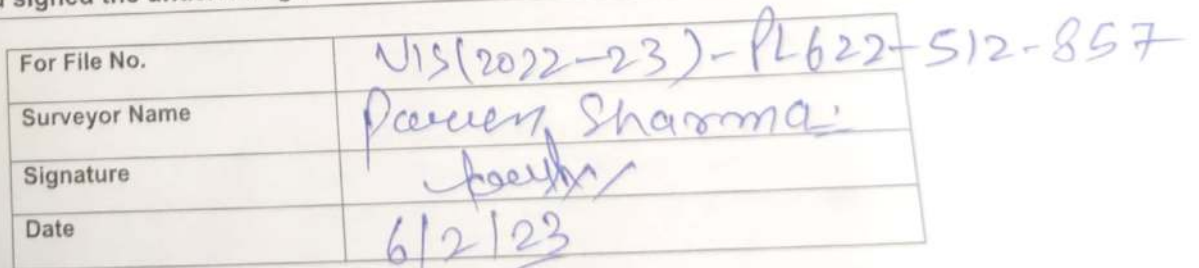 signed the
For File No. VIS(2022-23)-PL622-512-857
Surveyor Name Parven Sharma
Signature
Date 6/2/23